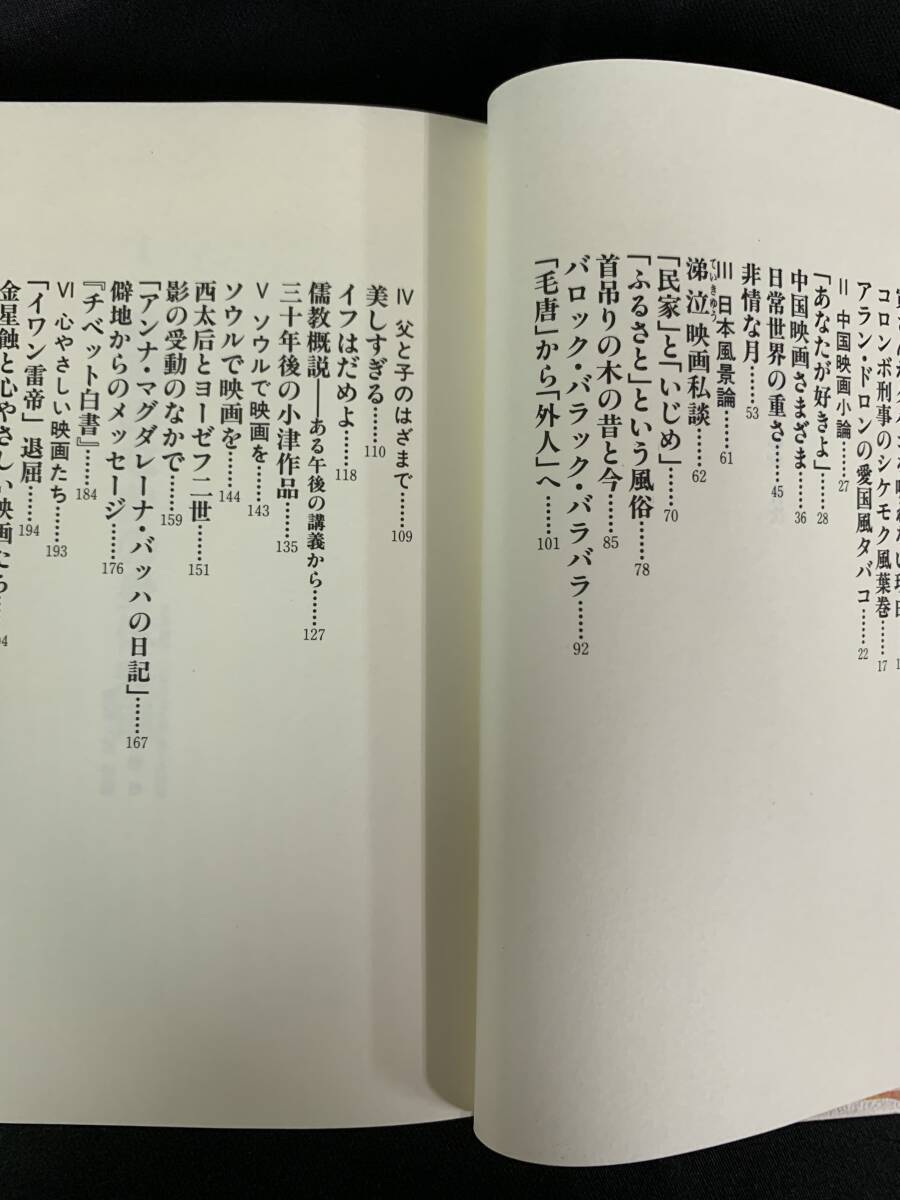 コロンボ刑事のシケモク風葉巻……17
アラン・ドロンの愛国風タバコ……22
II 中国映画小論……27
「あなたが好きよ」……28
中国映画さまざま……36
日常世界の重さ……45
非情な月……53
III 日本風景論……61
ていきゆう
涕泣映画私談……62
「民家」と「いじめ」……70
「ふるさと」という風俗……78
首吊りの木の昔と今……85
バロック・バラック・バラバラ……92
「毛唐」から「外人」へ……101
IV 父と子のはざまで……109
美しすぎる……110
イフはだめよ……118
儒教概説――ある午後の講義から……127
三十年後の小津作品……135
V ソウルで映画を……143
ソウルで映画を……144
西太后とヨーゼフ二世……151
影の受動のなかで……159
「アンナ・マグダレーナ・バッハの日記」……167
僻地からのメッセージ……176
『チベット白書』……184
VI 心やさしい映画たち……193
「イワン雷帝」退屈……194
金星蝕と心やさしい映画たち